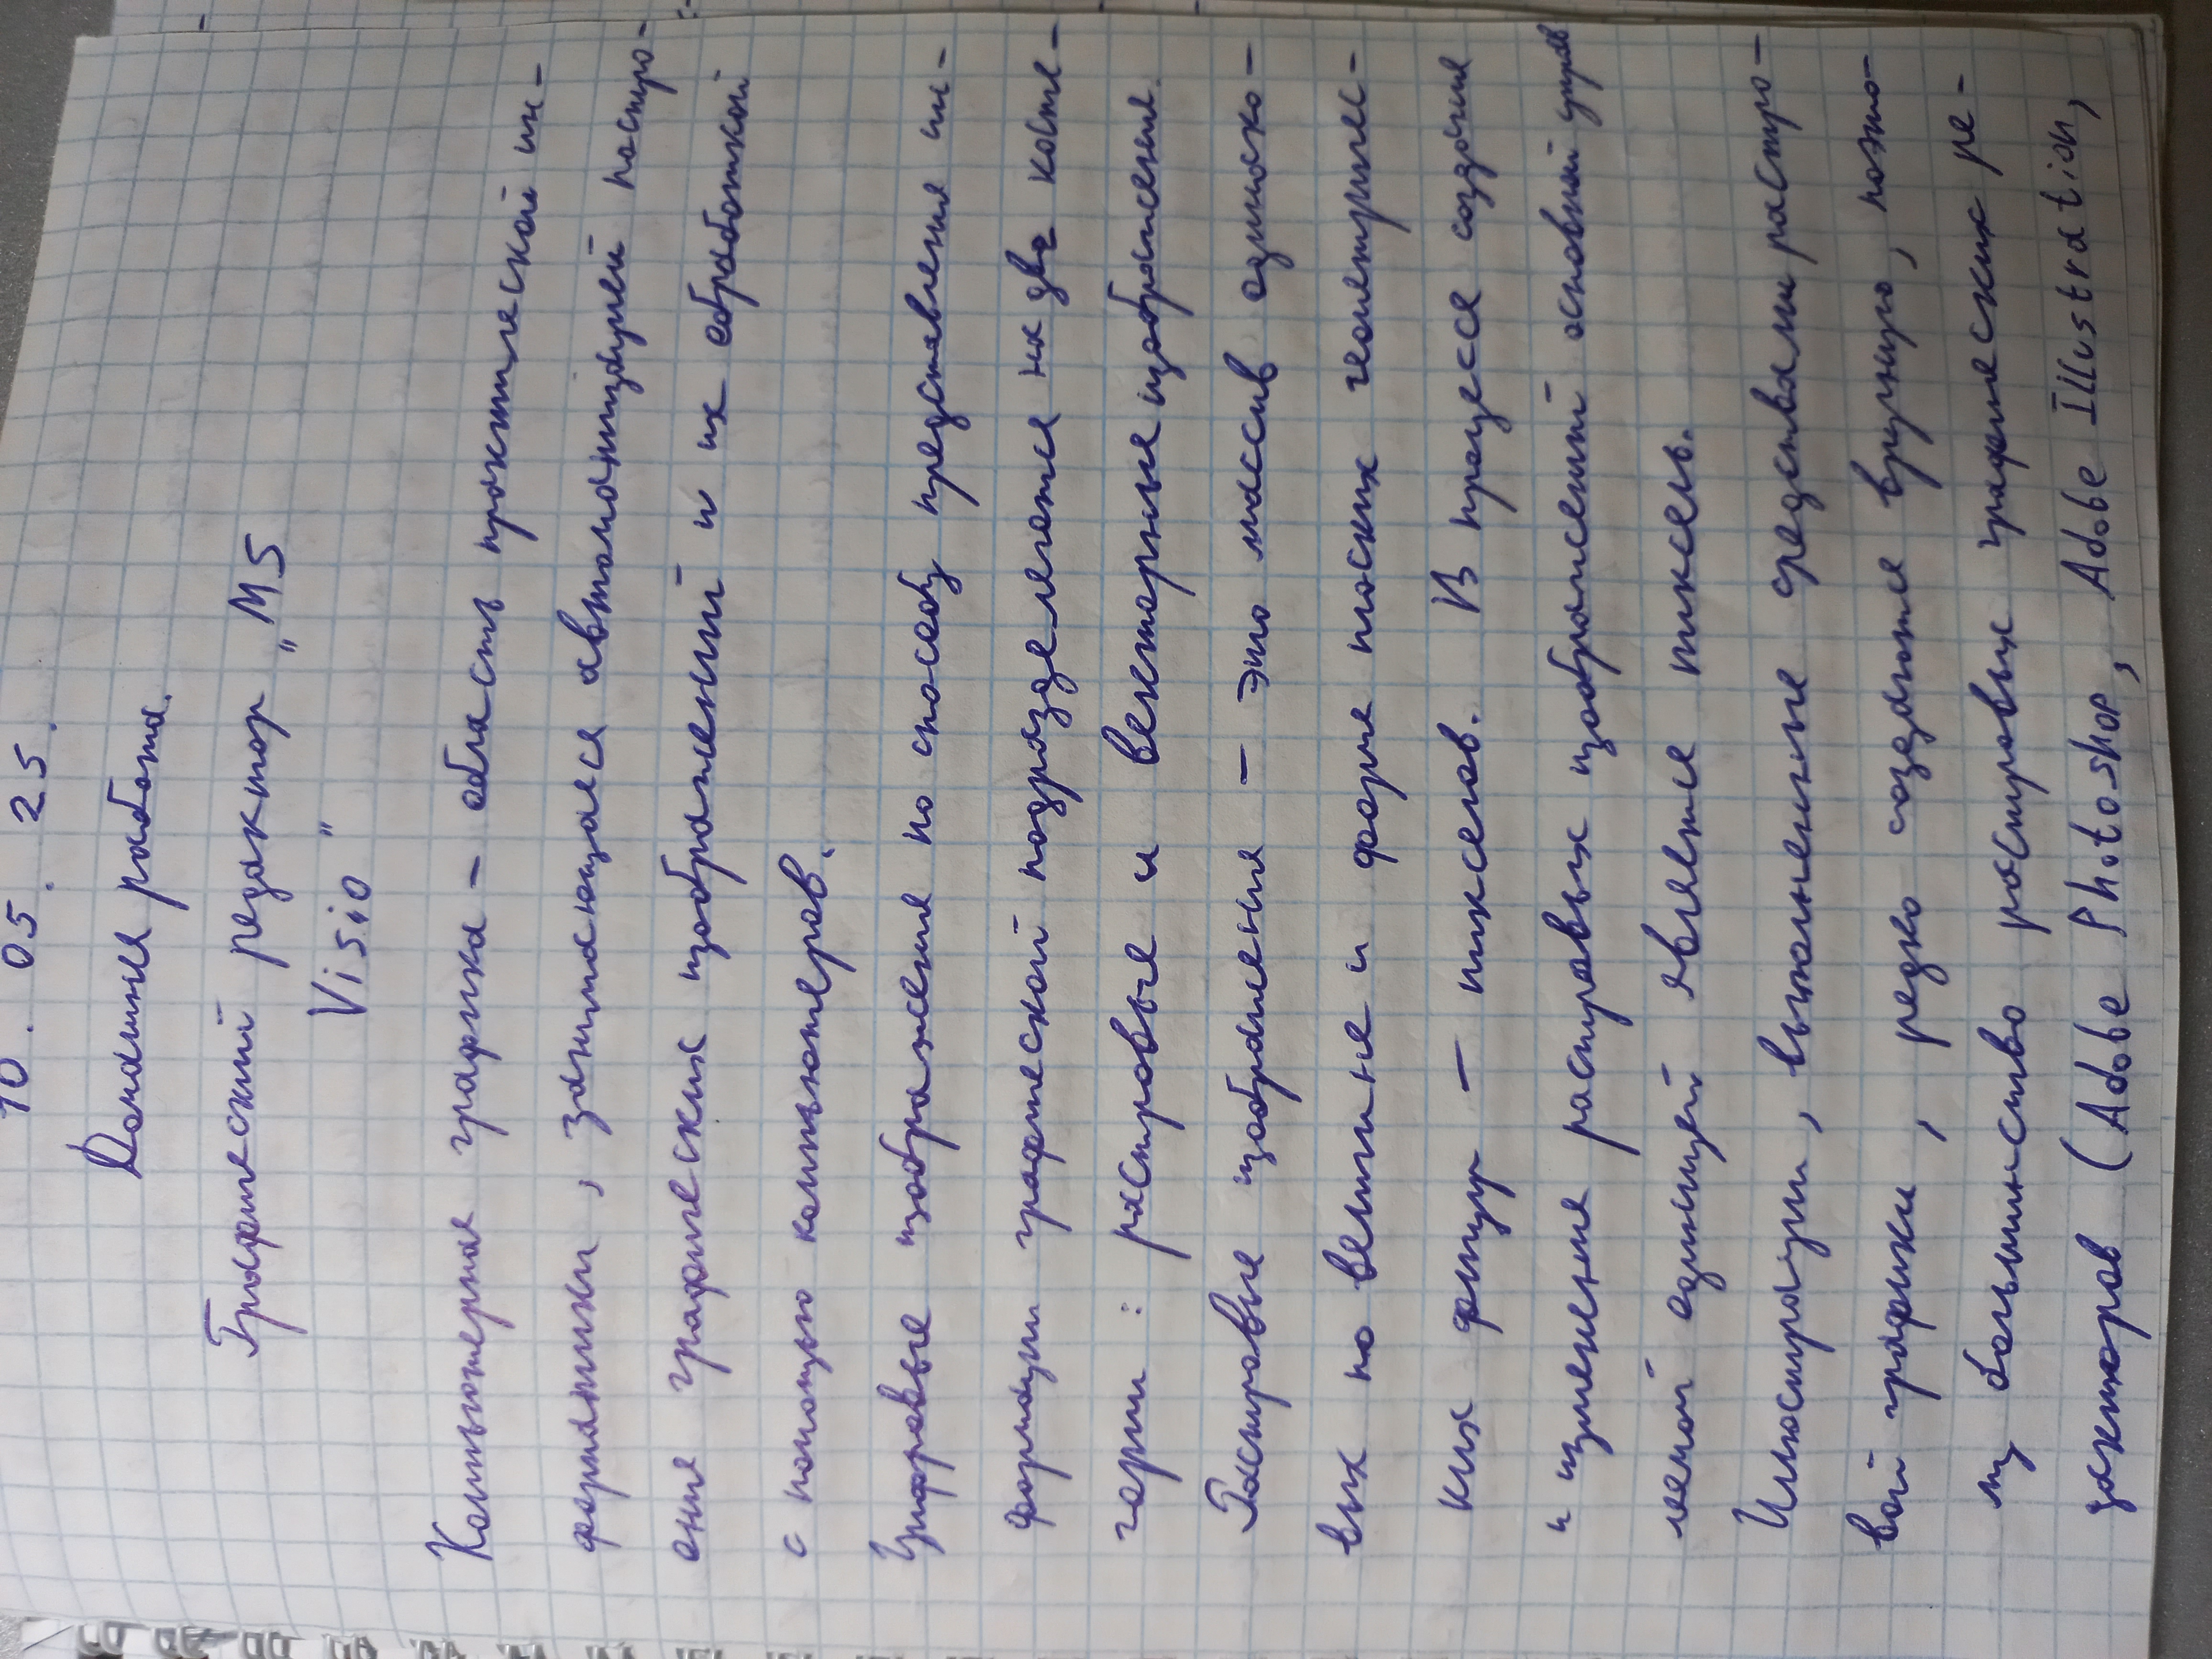 10. 05. 25.
Домашняя работа.
Графический редактор „MS
Visio"
Компьютерная графика – область практической ин-
форматики, занимающаяся автоматизацией постро-
ения графических изображений и их обработкой
с помощью компьютеров.
Цифровые изображения по способу представления ин-
формации графической подразделяются на две кате-
гории: растровые и векторные изображения.
Растровые изображения – это массив одинако-
вых по величине и форме плоских геометричес-
ких фигур – пикселов. В процессе создания
и изменения растровых изображений основной управ
ляемой единицей является пиксель.
Иллюстрации, выполненные средствами растро-
вой графики, редко создаются вручную, поэто-
му большинство растровых графических ре-
дакторов (Adobe Photoshop, Adobe Illustration,